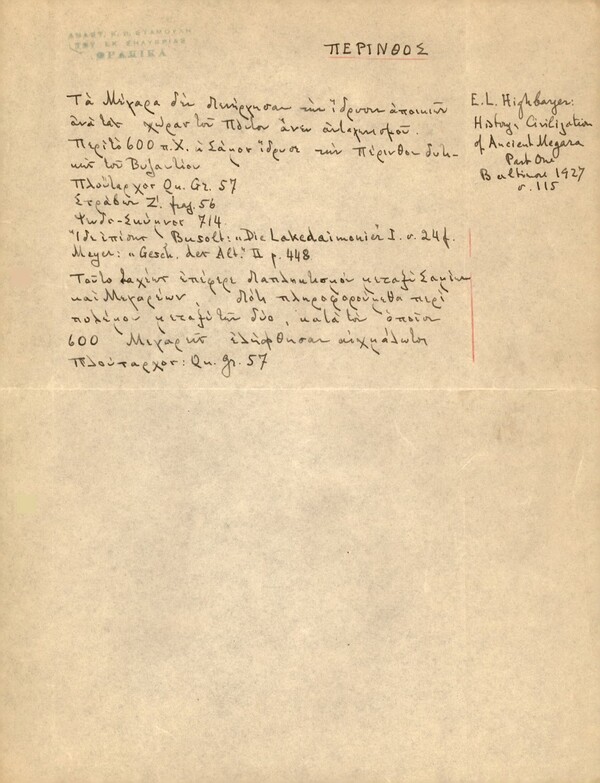 ΑΝΑΣΤ. Κ. Π. ΣΤΑΜΟΥΛΗ
ΤΟΥ ΕΚ ΣΗΛΥΒΡΙΑΣ
ΘΡΑΚΙΚΑ
ΠΕΡΙΝΘΟΣ
Τὰ Μέγαρα δὲν διενήργησαν τὴν ἵδρυσιν ἀποικιῶν
ἀνὰ τὰς χώρας τοῦ Πόντου ἄνευ ἀνταγωνισμοῦ.
Περὶ τὸ 600 π.Χ. ἡ Σάμος ἵδρυσε τὴν Πέρινθον δυτι-
κῶς τοῦ Βυζαντίου
Πλούταρχος Qu. Gr. 57
Στράβων Ζ'. frg. 56
Ψευδο-Σκύμνος 714
Ἴδε ἐπίσης Busolt: "Die Lakedaimonier I. σ. 24 f.
Meyer: "Gesch. der Alt." II p. 448
Τοῦτο ἐπέφερε διαπληκτισμὸν μεταξὺ Σαμίων
καὶ Μεγαρέων, διότι πληροφορούμεθα περὶ
πολέμου μεταξὺ τῶν δύο, κατὰ τὸν ὁποῖον
600 Μεγαρεῖς ἐλήφθησαν αἰχμάλωτοι
Πλούταρχος: Qu. Gr. 57
E. L. Highbarger:
History & Civilization
of Ancient Megara
Part One
Baltimore 1927
σ. 115